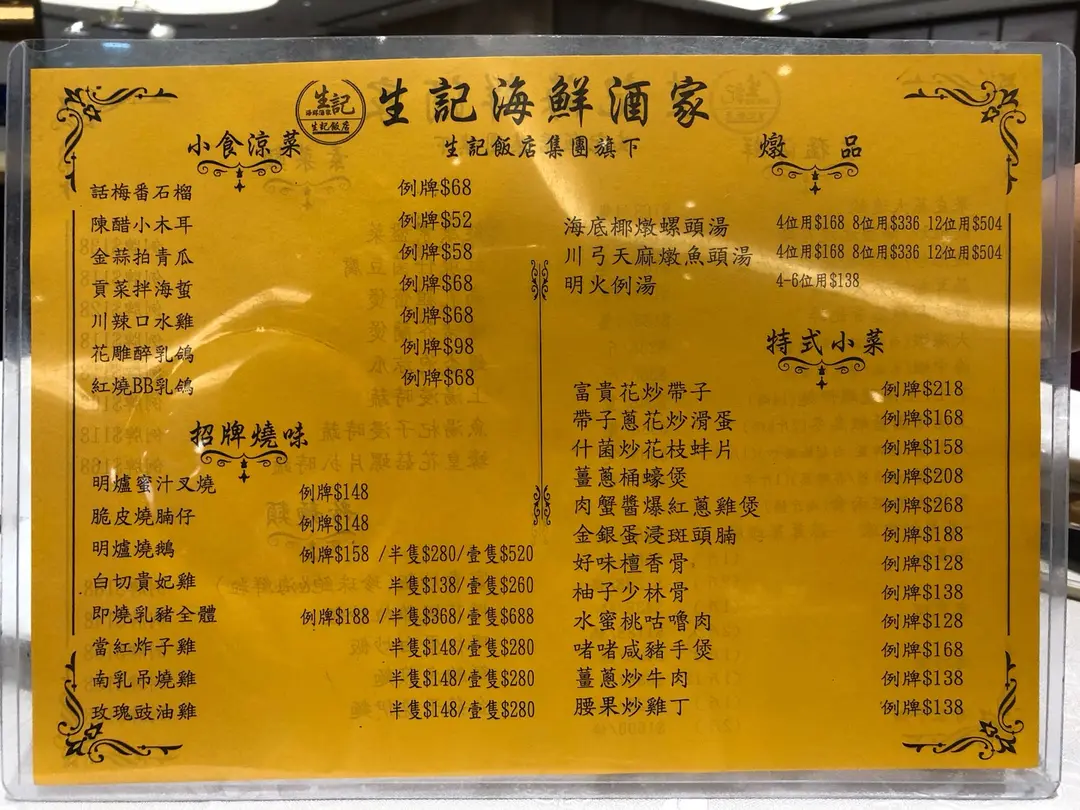 生記
海鮮酒家
生記飯店
生記海鮮酒家
生記飯店集團旗下
小食涼菜
話梅番石榴 例牌$68
陳醋小木耳 例牌$52
金蒜拍青瓜 例牌$58
貢菜拌海蜇 例牌$68
川辣口水雞 例牌$68
花雕醉乳鴿 例牌$98
紅燒BB乳鴿 例牌$68
招牌燒味
明爐蜜汁叉燒 例牌$148
脆皮燒腩仔 例牌$148
明爐燒鵝 例牌$158 /半隻$280/壹隻$520
白切貴妃雞 半隻$138/壹隻$260
即燒乳豬全體 例牌$188 /半隻$368/壹隻$688
當紅炸子雞 半隻$148/壹隻$280
南乳吊燒雞 半隻$148/壹隻$280
玫瑰豉油雞 半隻$148/壹隻$280
燉品
海底椰燉螺頭湯 4位用$168 8位用$336 12位用$504
川弓天麻燉魚頭湯 4位用$168 8位用$336 12位用$504
明火例湯 4-6位用$138
特式小菜
富貴花炒帶子 例牌$218
帶子蔥花炒滑蛋 例牌$168
什菌炒花枝蚌片 例牌$158
薑蔥桶蠔煲 例牌$208
肉蟹醬爆紅蔥雞煲 例牌$268
金銀蛋浸斑頭腩 例牌$188
好味檀香骨 例牌$128
柚子少林骨 例牌$138
水蜜桃咕嚕肉 例牌$128
啫啫咸豬手煲 例牌$168
薑蔥炒牛肉 例牌$138
腰果炒雞丁 例牌$138